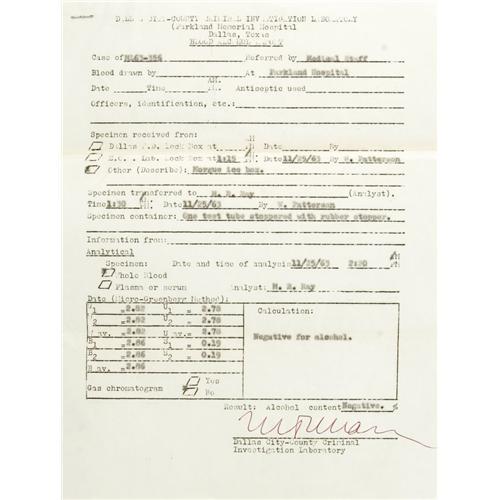 DALLAS CITY-COUNTY CRIMINAL INVESTIGATION LABORATORY
(Parkland Memorial Hospital
Dallas, Texas
BLOOD ALCOHOL REPORT
Case of M163-356 Referred by Medical Staff
Blood drawn by At Parkland Hospital
Date Time AM. PM. Antiseptic used
Officers, identification, etc.:
Specimen received from:
Dallas P.D. Lock Box at Date By
Lab. Lock Box at 1:15 Date 11/25/63 By W. Patterson
Other (Describe): Morgue ice box.
Specimen transferred to M. R. Ray (Analyst).
Time 1:30 Date 11/25/63 By W. Patterson
Specimen container: One test tube stoppered with rubber stopper.
Information from:
Analytical
Specimen: Date and time of analysis 11/25/63 2:20
Whole Blood
Plasma or serum Analyst: M. R. Ray
Data (Micro-Greenberg Method):
U1 =2.82 U1 = 2.78 Calculation:
2 =2.82 U2 = 2.78
av. =2.82 U av. = 2.78
B1 =2.86 S1 = 0.19 Negative for alcohol.
B2 =2.86 S2 = 0.19
B av. =2.86
Gas chromatogram Yes
No
Result: Alcohol content Negative. %
Dallas City-County Criminal
Investigation Laboratory